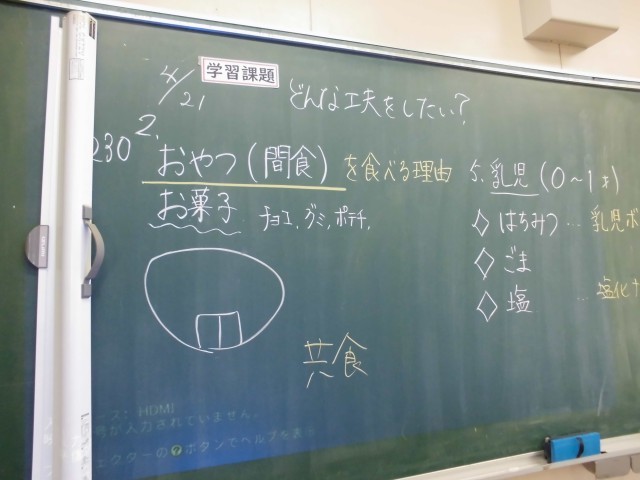 4/21 学習課題 どんな工夫をしたい?
230 2.
おやつ(間食)を食べる理由
お菓子 チョコ、グミ、ポテチ、
共食
5. 乳児(0~1才)
◇はちみつ … 乳児ボ
◇ごま
◇塩 … 塩化ナ
ース: HDMI
が入力されていません。
ェクターの?ボタンでヘルプを表示